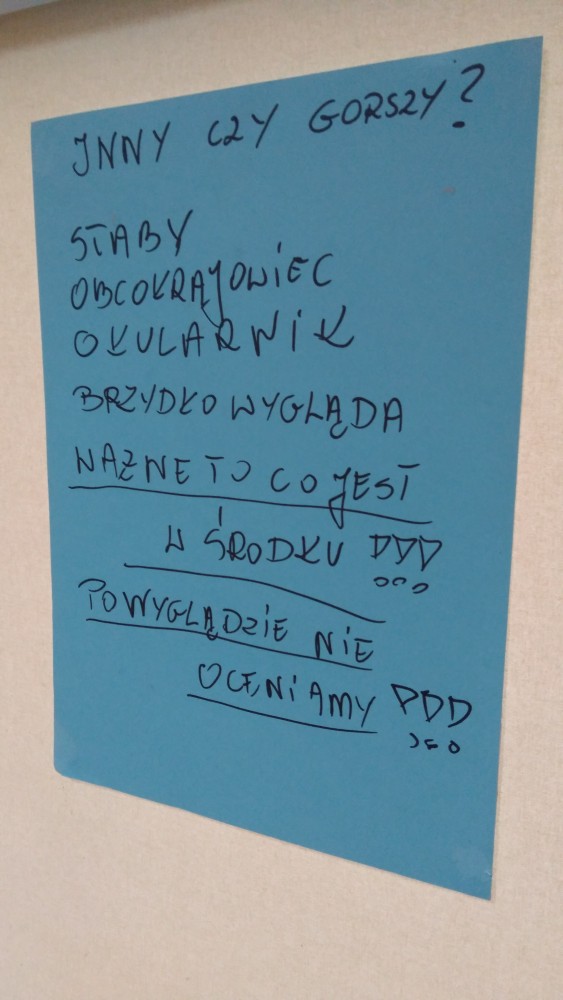 INNY CZY GORSZY?
SŁABY
OBCOKRAJOWIEC
OKULARNIK
BRZYDKO WYGLĄDA
WAŻNE TO CO JEST
W ŚRODKU !!!
PO WYGLĄDZIE NIE
OCENIAMY !!!